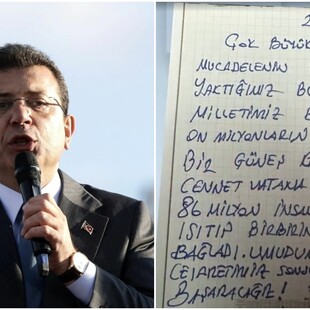 2
ÇOK BÜYÜK
MÜCADELENİN
YAKTIĞIMIZ
MİLLETİMİZ
ON MİLYONLARIN
BİR GÜNEŞ
CENNET VATANA
86 MİLYON İNSAN
ISITIP BİRBİRİN
BAĞLADI. UMUDUM
CESARETİMİZ SONSU
BAŞARACAĞIZ!